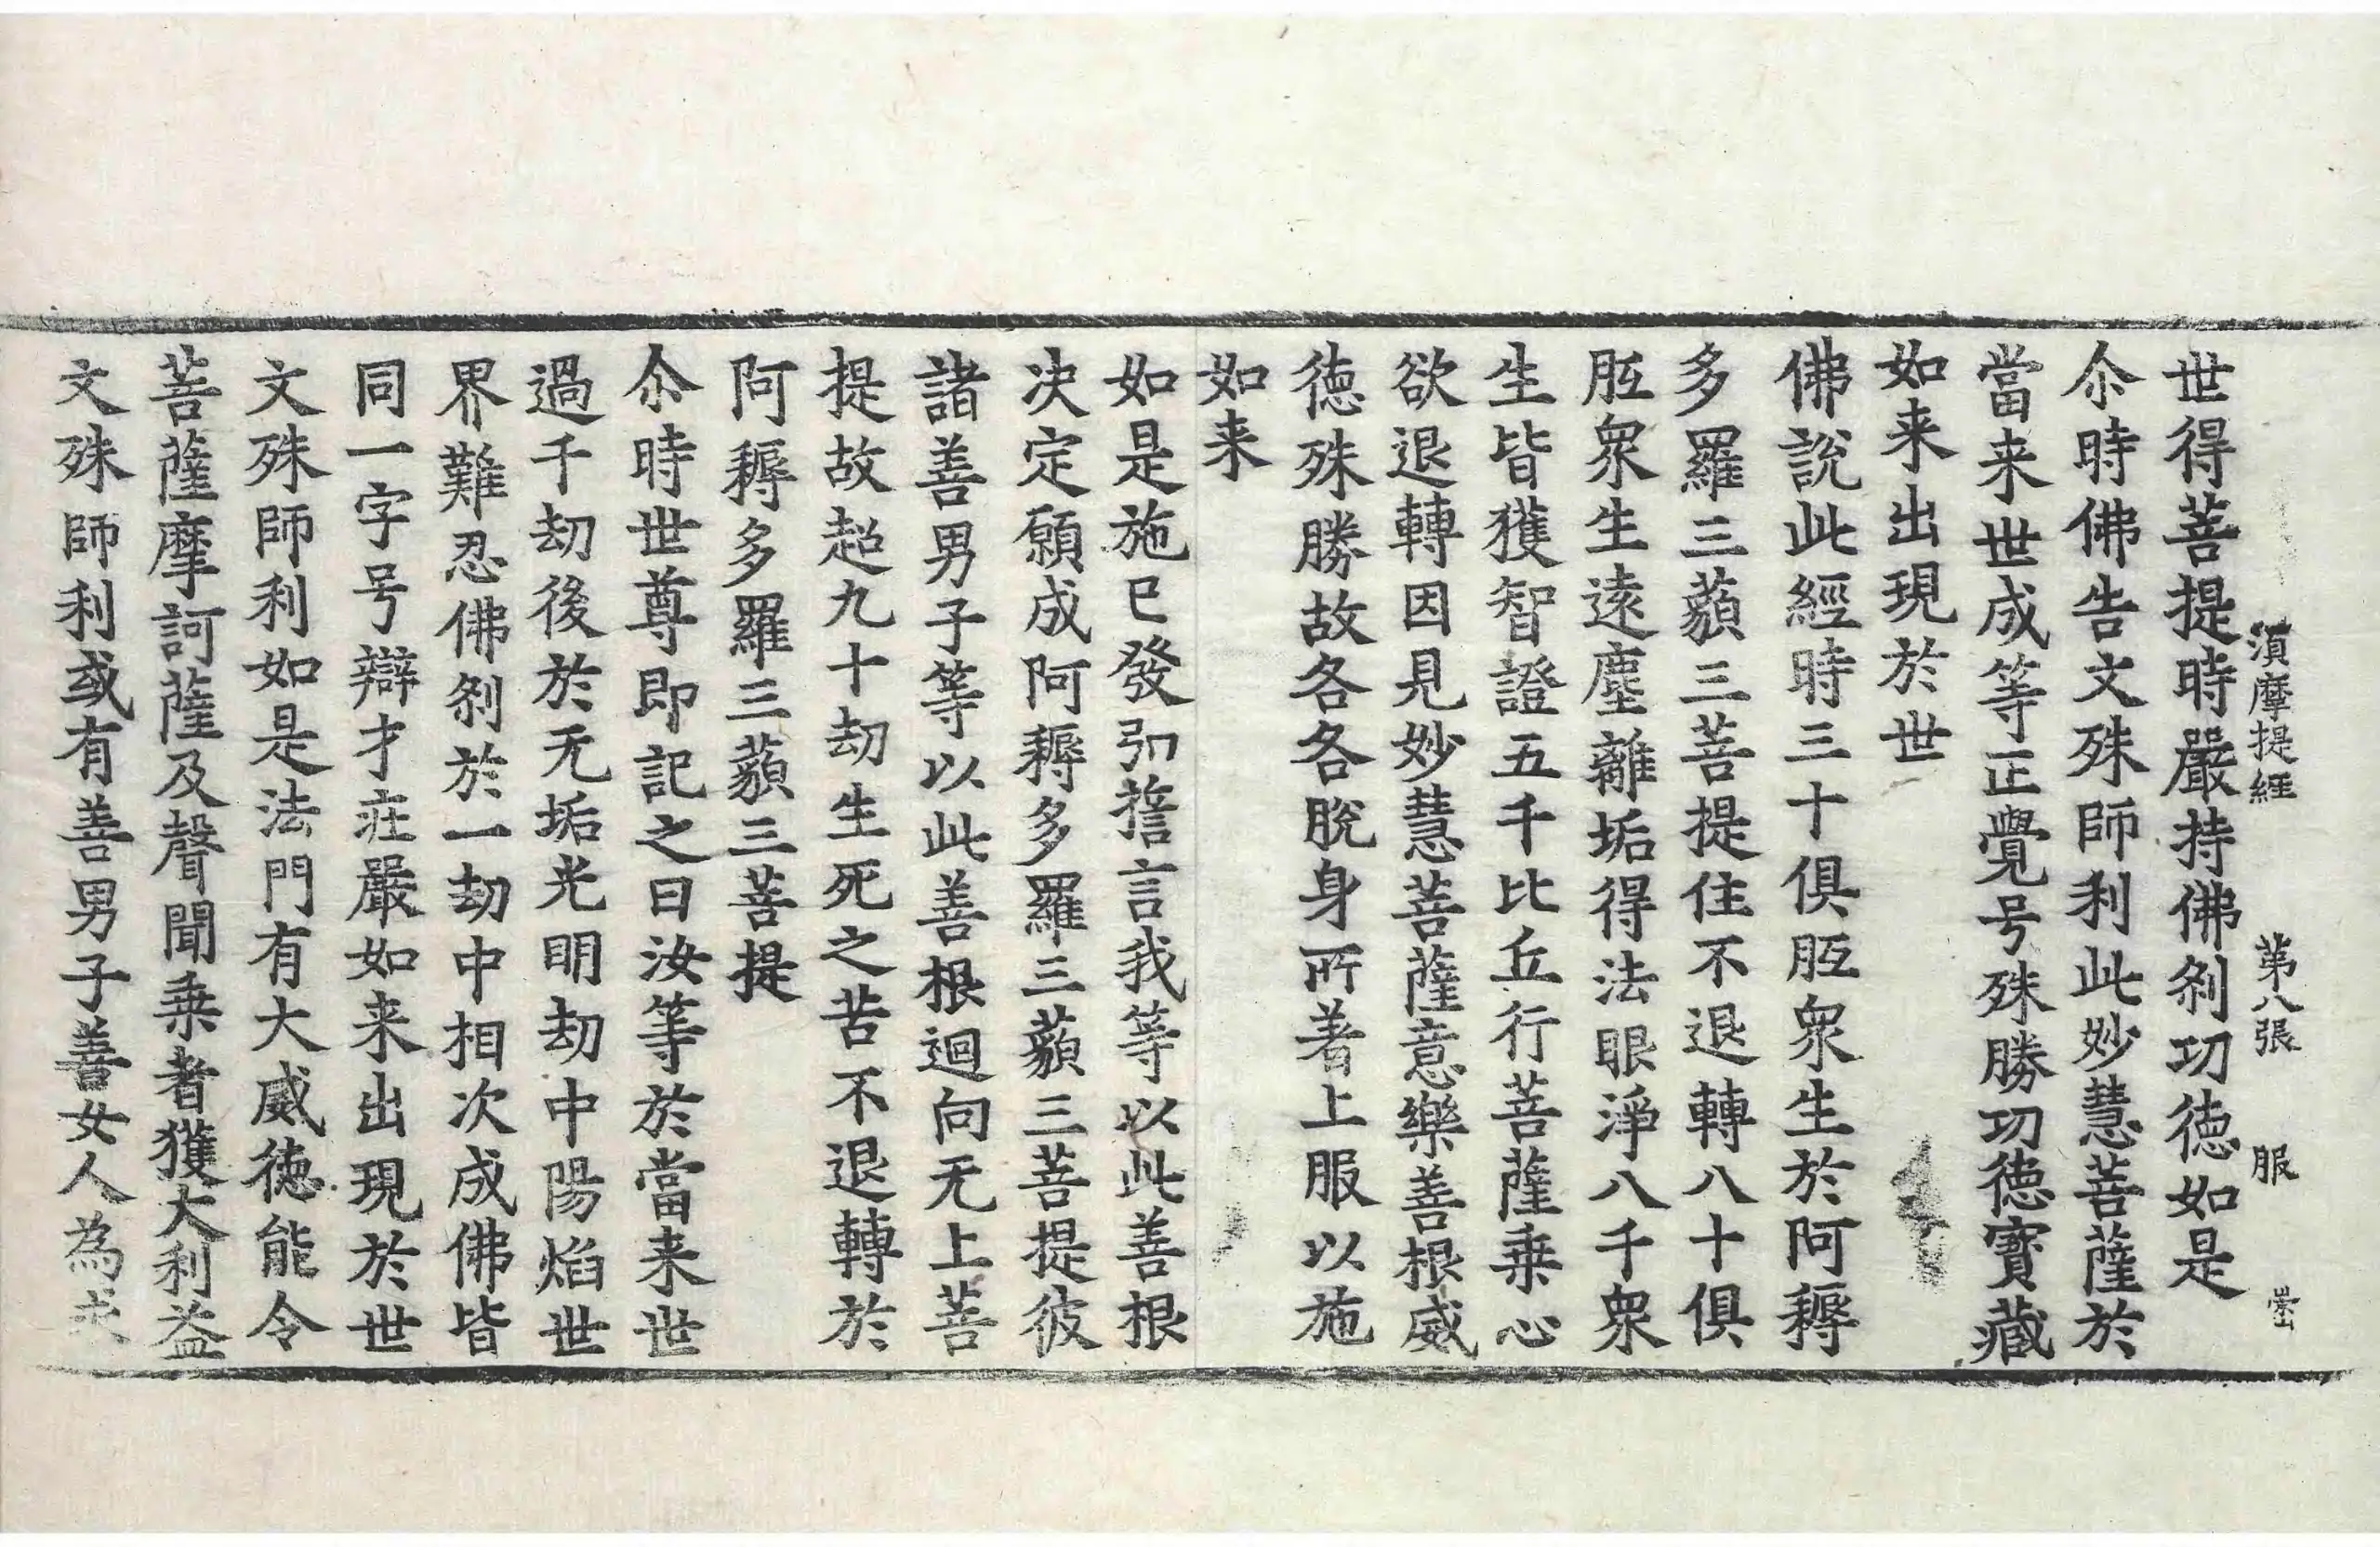 湏摩提經 第八張 服 崇
世得菩提時嚴持佛刹功徳如是
尒時佛告文殊師利此妙慧菩薩於
當来世成等正覺号殊勝功徳寶藏
如来出現於世
佛說此經時三十俱胝衆生於阿耨
多羅三藐三菩提住不退轉八十俱
胝衆生逺塵離垢得法眼淨八千衆
生皆獲智證五千比丘行菩薩乗心
欲退轉因見妙慧菩薩意樂善根威
徳殊勝故各各脫身所著上服以施
如来
如是施已發弘誓言我等以此善根
决定願成阿耨多羅三藐三菩提彼
諸善男子等以此善根迴向无上菩
提故超九十劫生死之苦不退轉於
阿耨多羅三藐三菩提
尒時世尊即記之曰汝等於當来世
過千劫後於无垢光明劫中陽焰世
界難忍佛刹於一劫中相次成佛皆
同一字号辯才莊嚴如来出現於世
文殊師利如是法門有大威徳能令
菩薩摩訶薩及聲聞乗者獲大利益
文殊師利或有善男子善女人為求